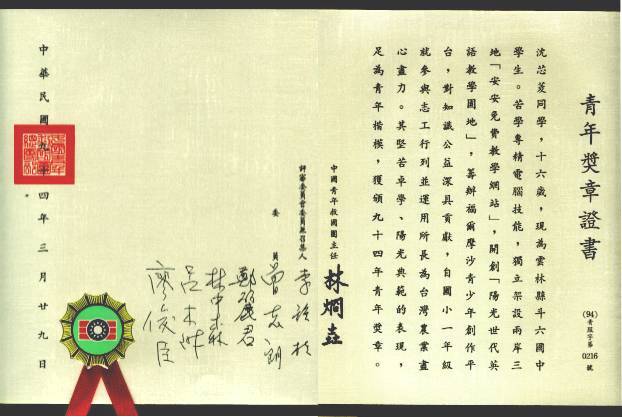 青年獎章證書
(94)青服字第0216號
沈芯菱同學,十六歲,現為雲林縣斗六國中
學生。苦學專精電腦技能,獨立架設兩岸三
地「安安免費教學網站」,開創「陽光世代英
語教學園地」,籌辦福爾摩沙青少年創作平
台,對知識公益深具貢獻,自國小一年級
就參與志工行列並運用所長為台灣農業盡
心盡力。其堅苦卓學、陽光典範的表現,
足為青年楷模,獲頒九十四年青年獎章。
中國青年救國團主任
評審委員會委員兼召集人
委員
中華民國九十四年三月廿九日